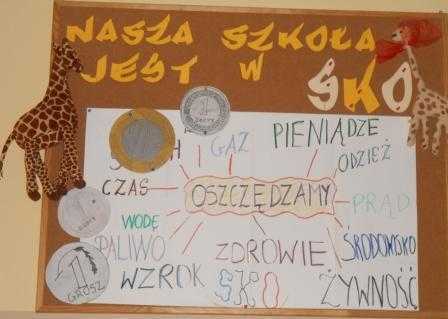 NASZA SZKOŁA
JEST W SKO
1
GAZ
PIENIĄDZE
ODZIEŻ
CZAS
OSZCZĘDZAMY
PRĄD
WODĘ
PALIWO
ZDROWIE
ŚRODOWISKO
WZROK
SKO
ŻYWNOŚĆ
1
GROSZ